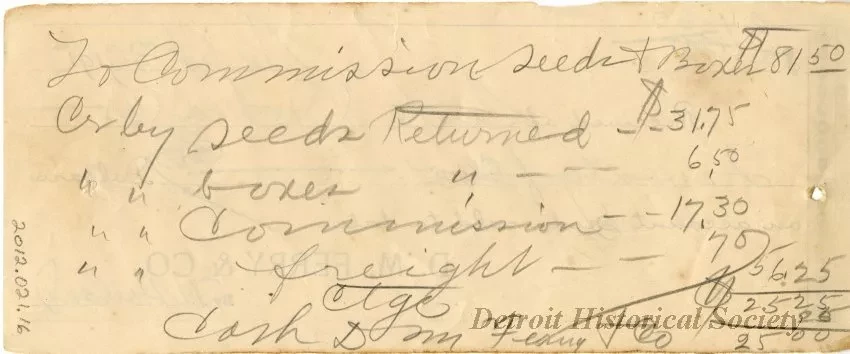 To Commission seeds & Boxes $81.50
Cr by seeds Returned - - $31.75
" " boxes " - - 6.50
" " Commission - - 17.30
" " freight - - 70
56.25
Ctge
$25.25
Cash D M Ferry & Co 25.00
D. M. FERRY & CO.
2012.021.16
Detroit Historical Society